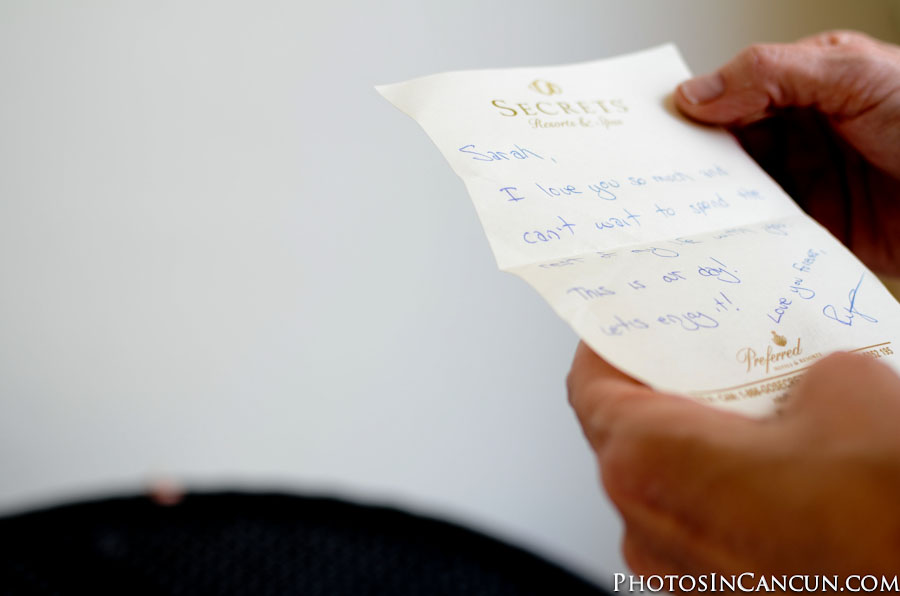 SECRETS
Resorts & Spas
Sarah,
I love you so much and
can't wait to spend the
rest of my life with you.
This is our day!
Let's enjoy it!
Love you forever,
Preferred
HOTELS & RESORTS
PHOTOSINCANCUN.COM